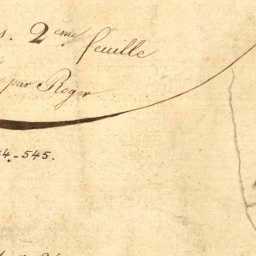 s. 2eme feuille
par Roger
4.-545.